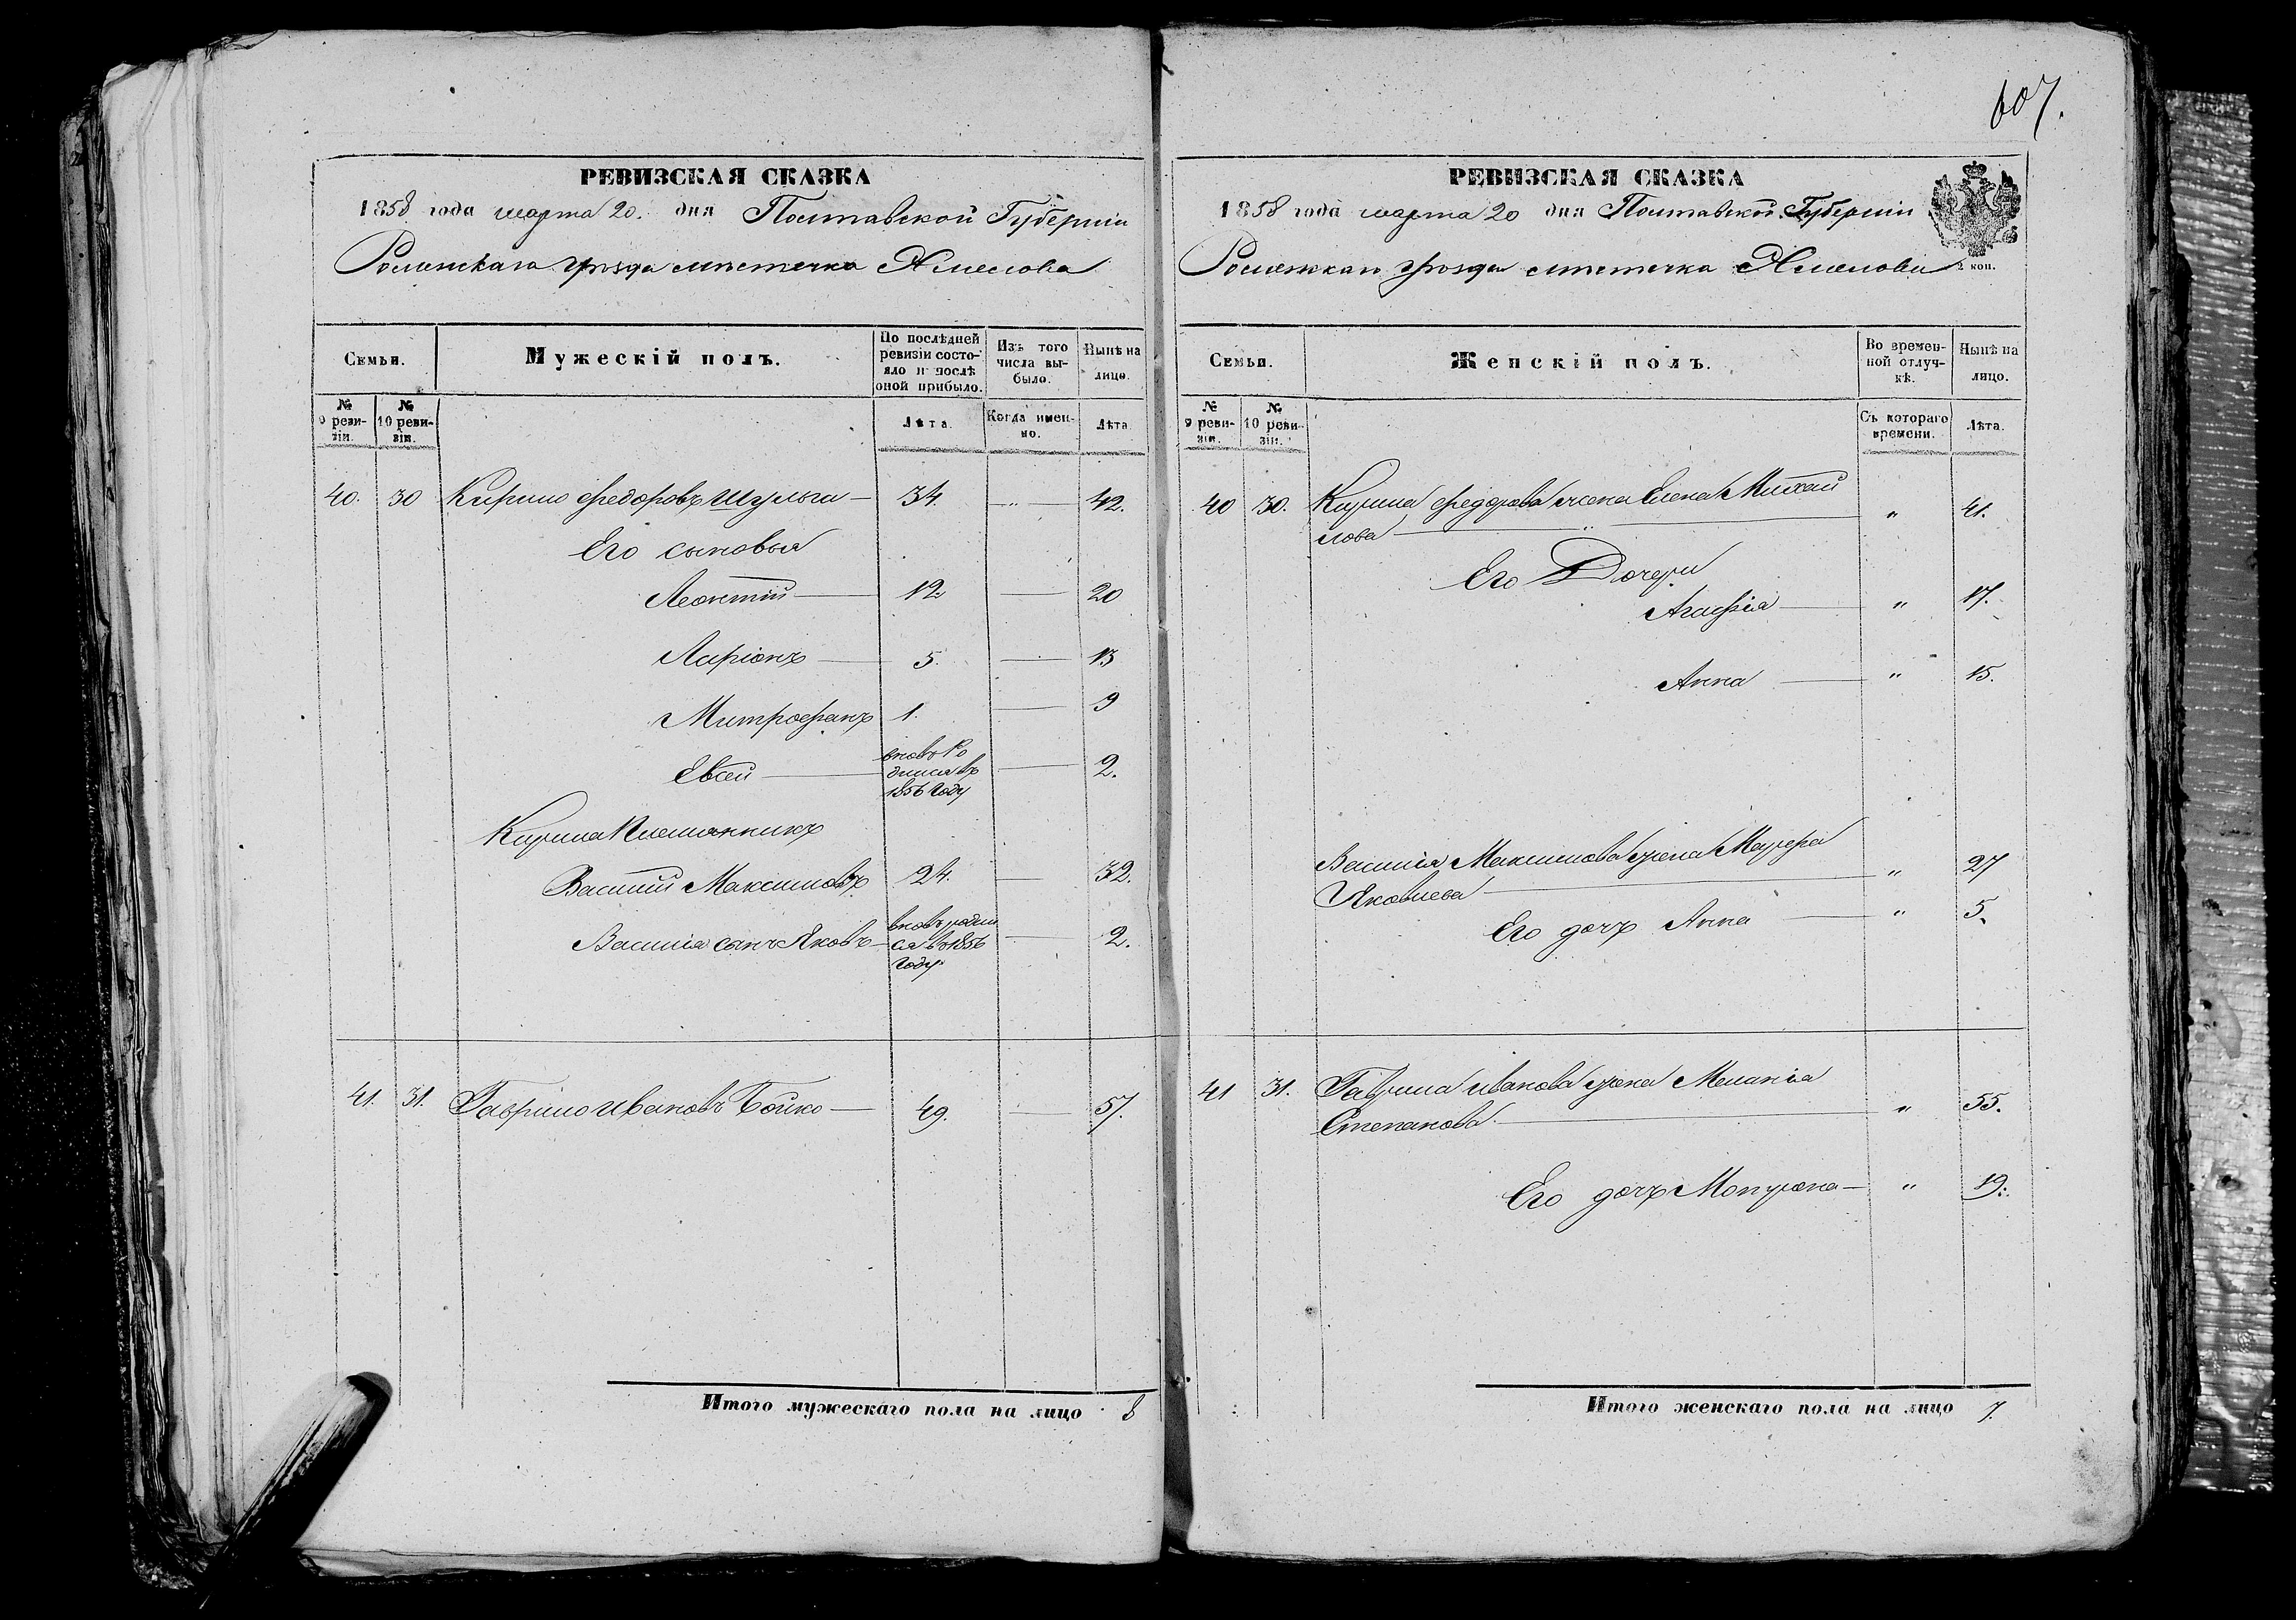 607.
РЕВИЗСКАЯ СКАЗКА
1858 года марта 20. дня Полтавской Губерніи
Роменскаго уѣзда мѣстечка Смелова
Семьи.
Мужескій полъ.
По послѣдней ревизіи состояло и послѣ оной прибыло.
Изъ того числа выбыло.
Нынѣ на лицо.
№ 9 ревизіи.
№ 10 ревизіи.
Лѣта.
Когда именно.
Лѣта.
40. 30 Кирило Федоровъ Шульга — 34. — „ — 42.
Его сыновья
Леонтій — 12. — 20
Ларіонъ — 5. — 13
Митрофанъ 1. — 9
Евсей — вновь родился въ 1856 году — 2.
Кирила племянникъ
Василій Максимовъ 24. — 32.
Василія сынъ Яковъ — вновь родился въ 1856 году — 2.
41. 31. Гаврило Ивановъ Бойко — 49. — 57.
Итого мужескаго пола на лицо 8
РЕВИЗСКАЯ СКАЗКА
1858 года марта 20 дня Полтавской Губерніи
Роменскаго уѣзда мѣстечка Смелова
2 коп.
Семьи.
Женскій полъ.
Во временной отлучкѣ.
Нынѣ на лицо.
№ 9 ревизіи.
№ 10 ревизіи.
Съ котораго времени.
Лѣта.
40 30. Кирила Федорова жена Елена Михай
лова — „ — „ 41.
Его Дочери
Агафія — „ 17.
Анна — „ 15.
Василія Максимова жена Марфа
Яковлева — „ 27
Его дочь Анна — „ 5.
41 31. Гаврила Иванова жена Меланія
Степанова — „ 55.
Его дочь Мотрона — „ 19.
Итого женскаго пола на лицо 7.